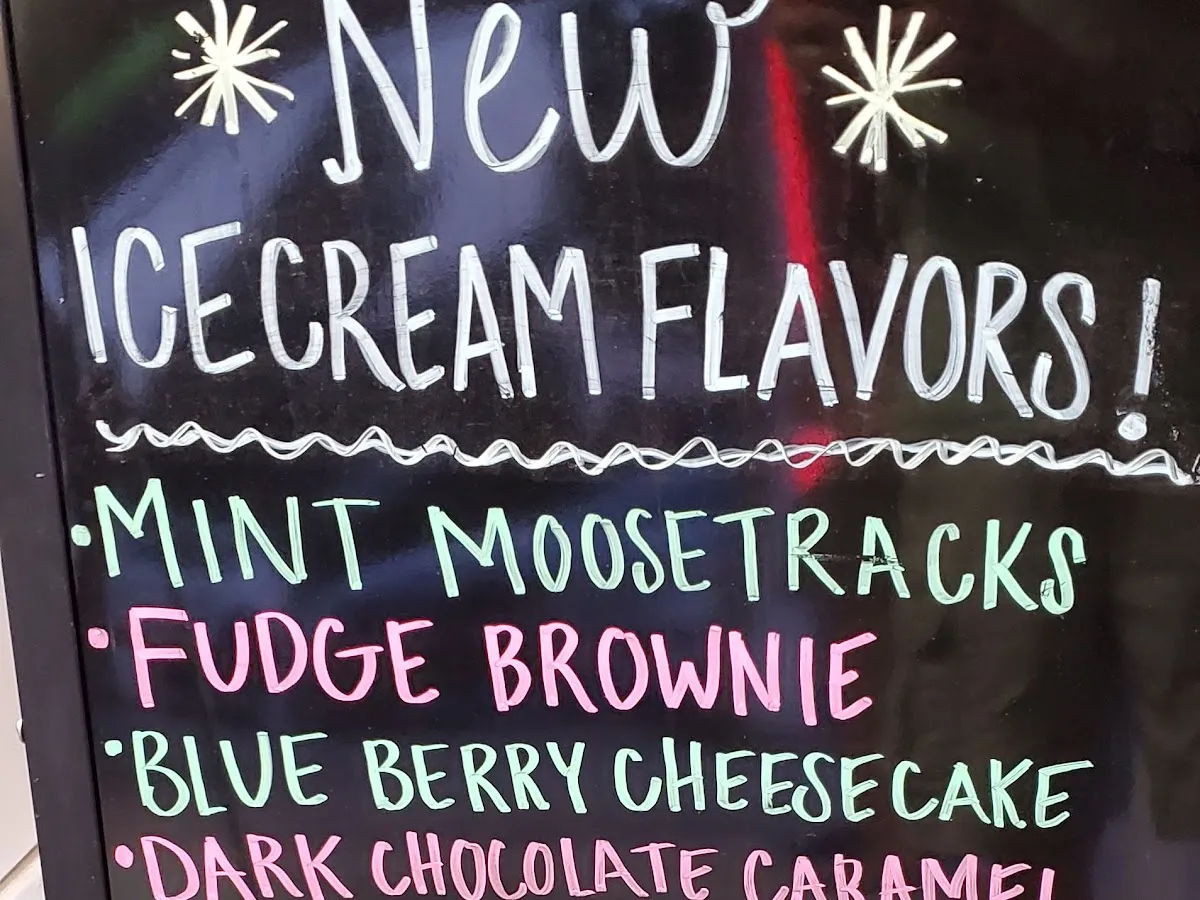 New
ICECREAM FLAVORS!
•MINT MOOSETRACKS
•FUDGE BROWNIE
•BLUE BERRY CHEESECAKE
•DARK CHOCOLATE CARAMEL